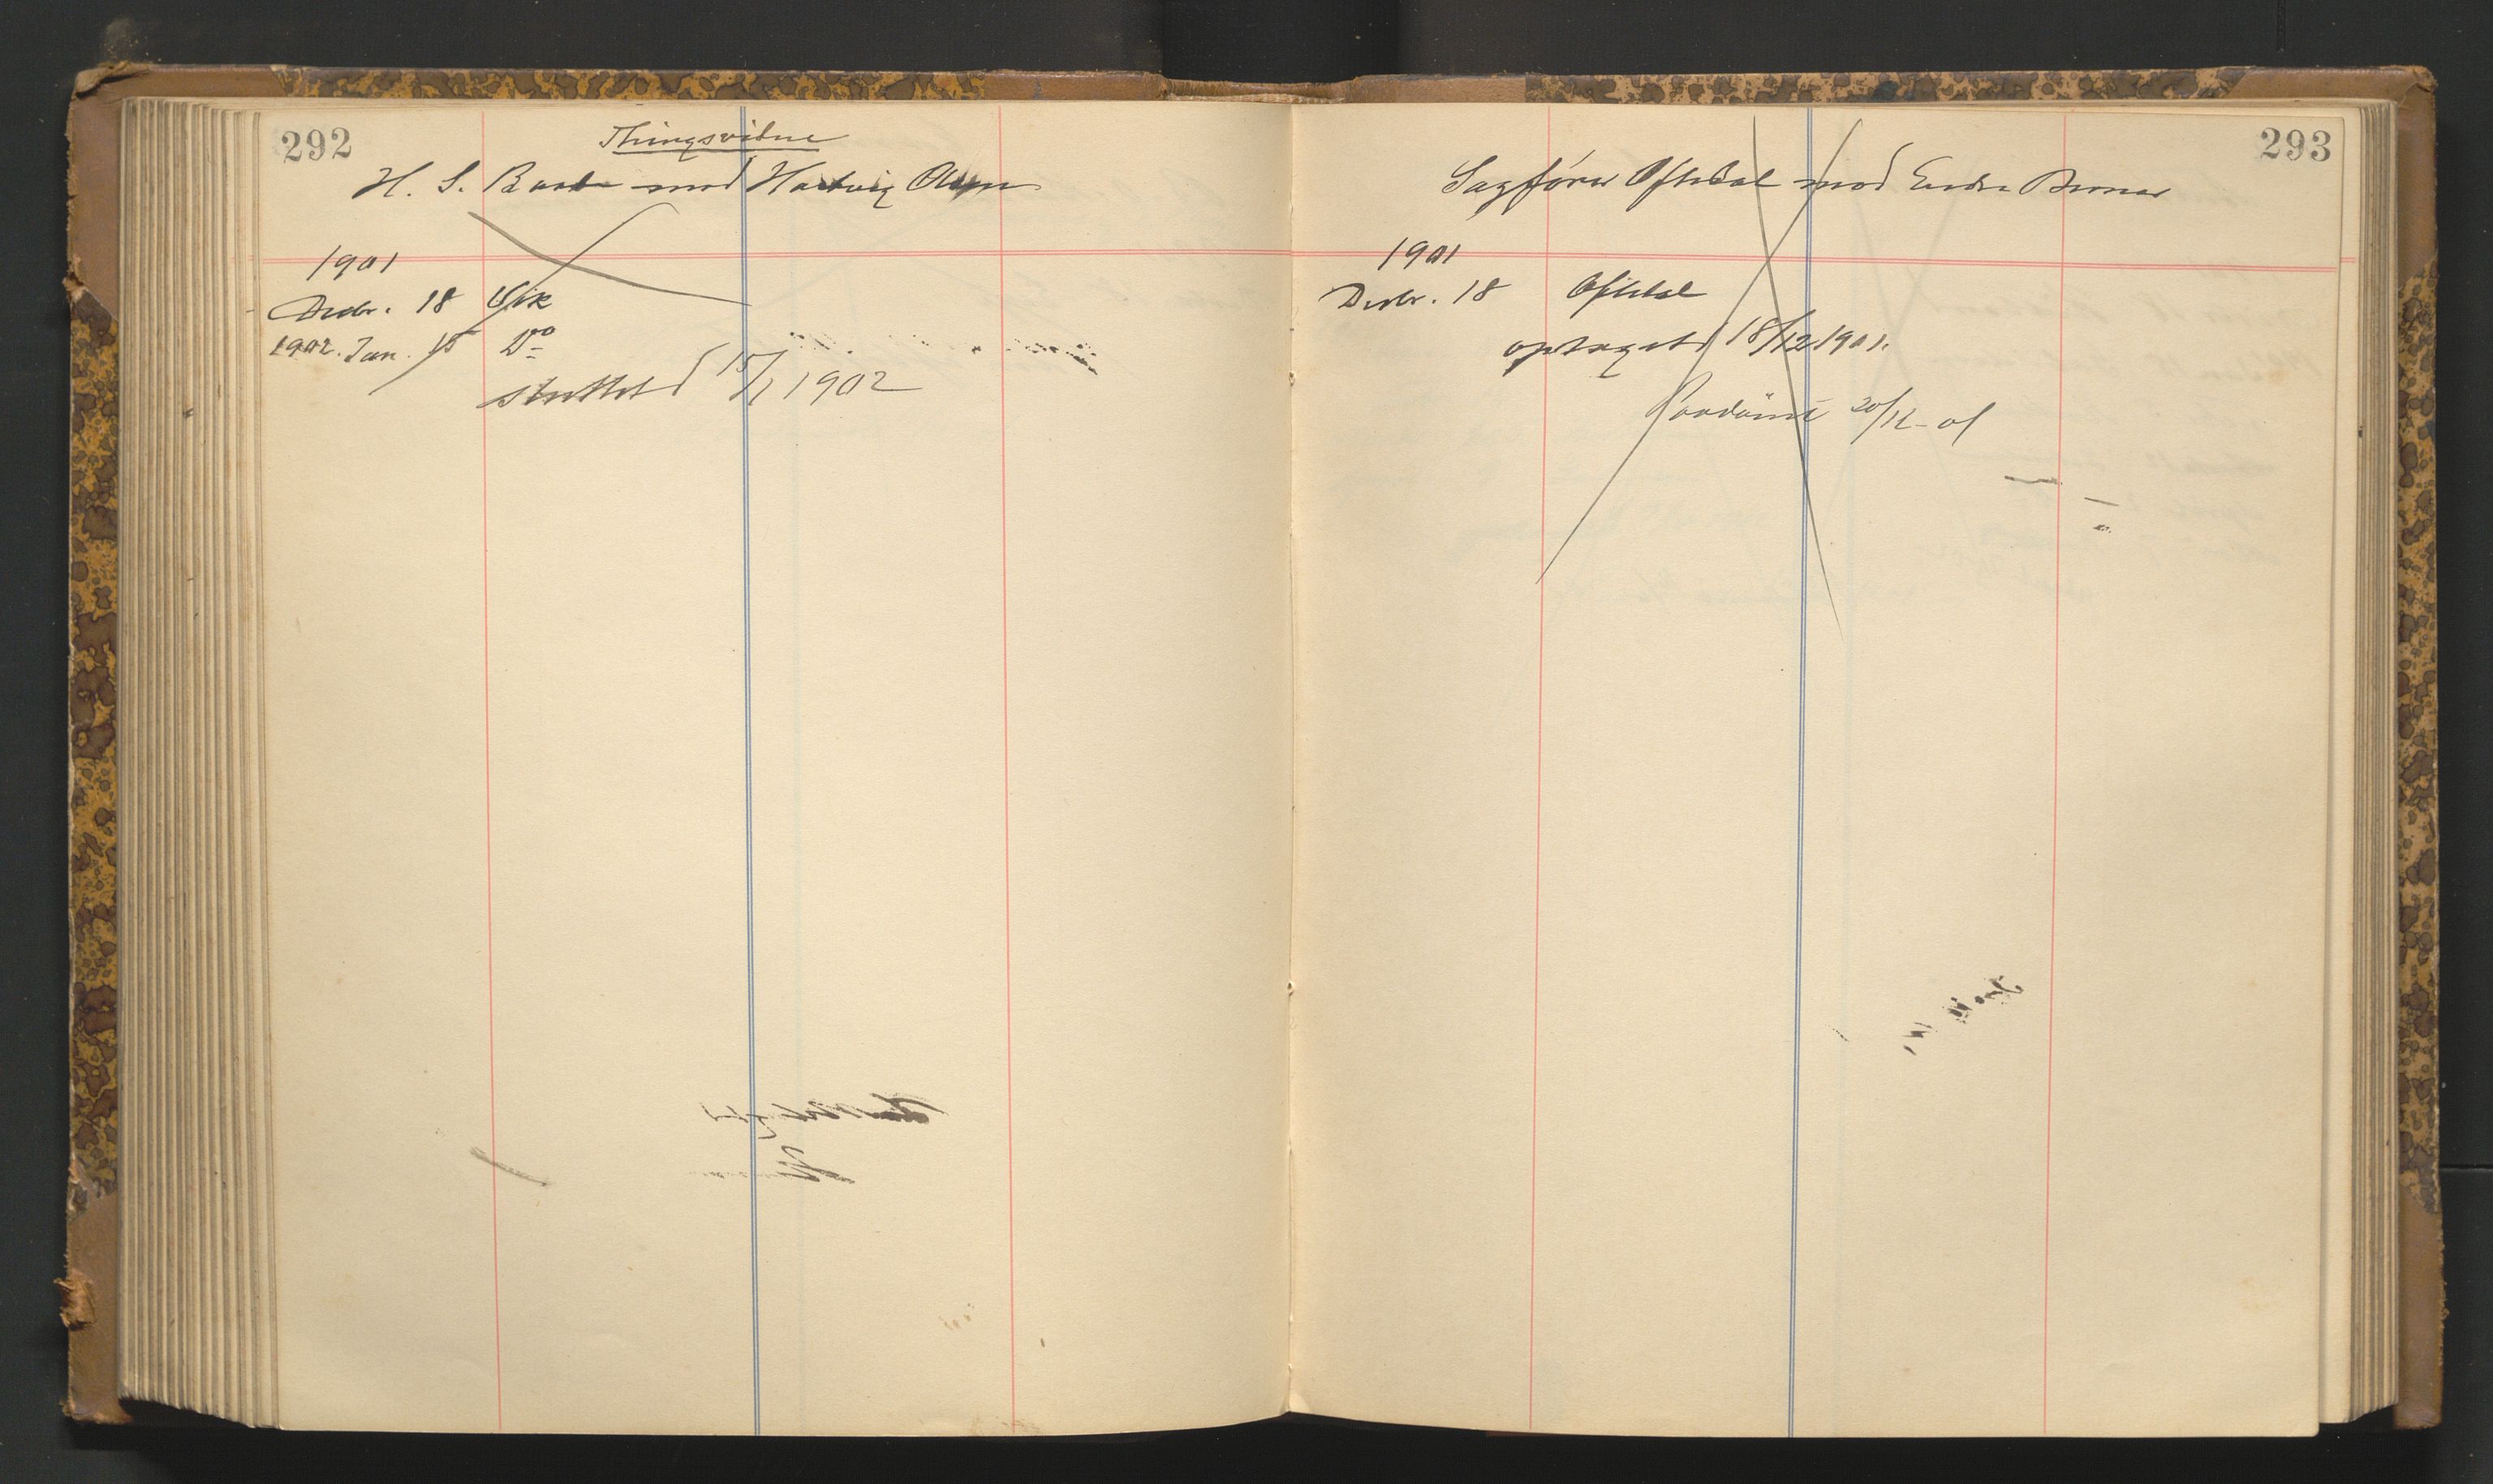 292
Thingsvidne
H. S. Baade mod Hartvig Olsen
1901
Decbr. 18 Vik
1902. Jan. 15 Do
sluttet d 15/1 1902
293
Sagfører Oftedal mod Endre
1901
Decbr. 18 Oftedal
optaget d 18/12 1901.
Paadømt 20/12 - 01